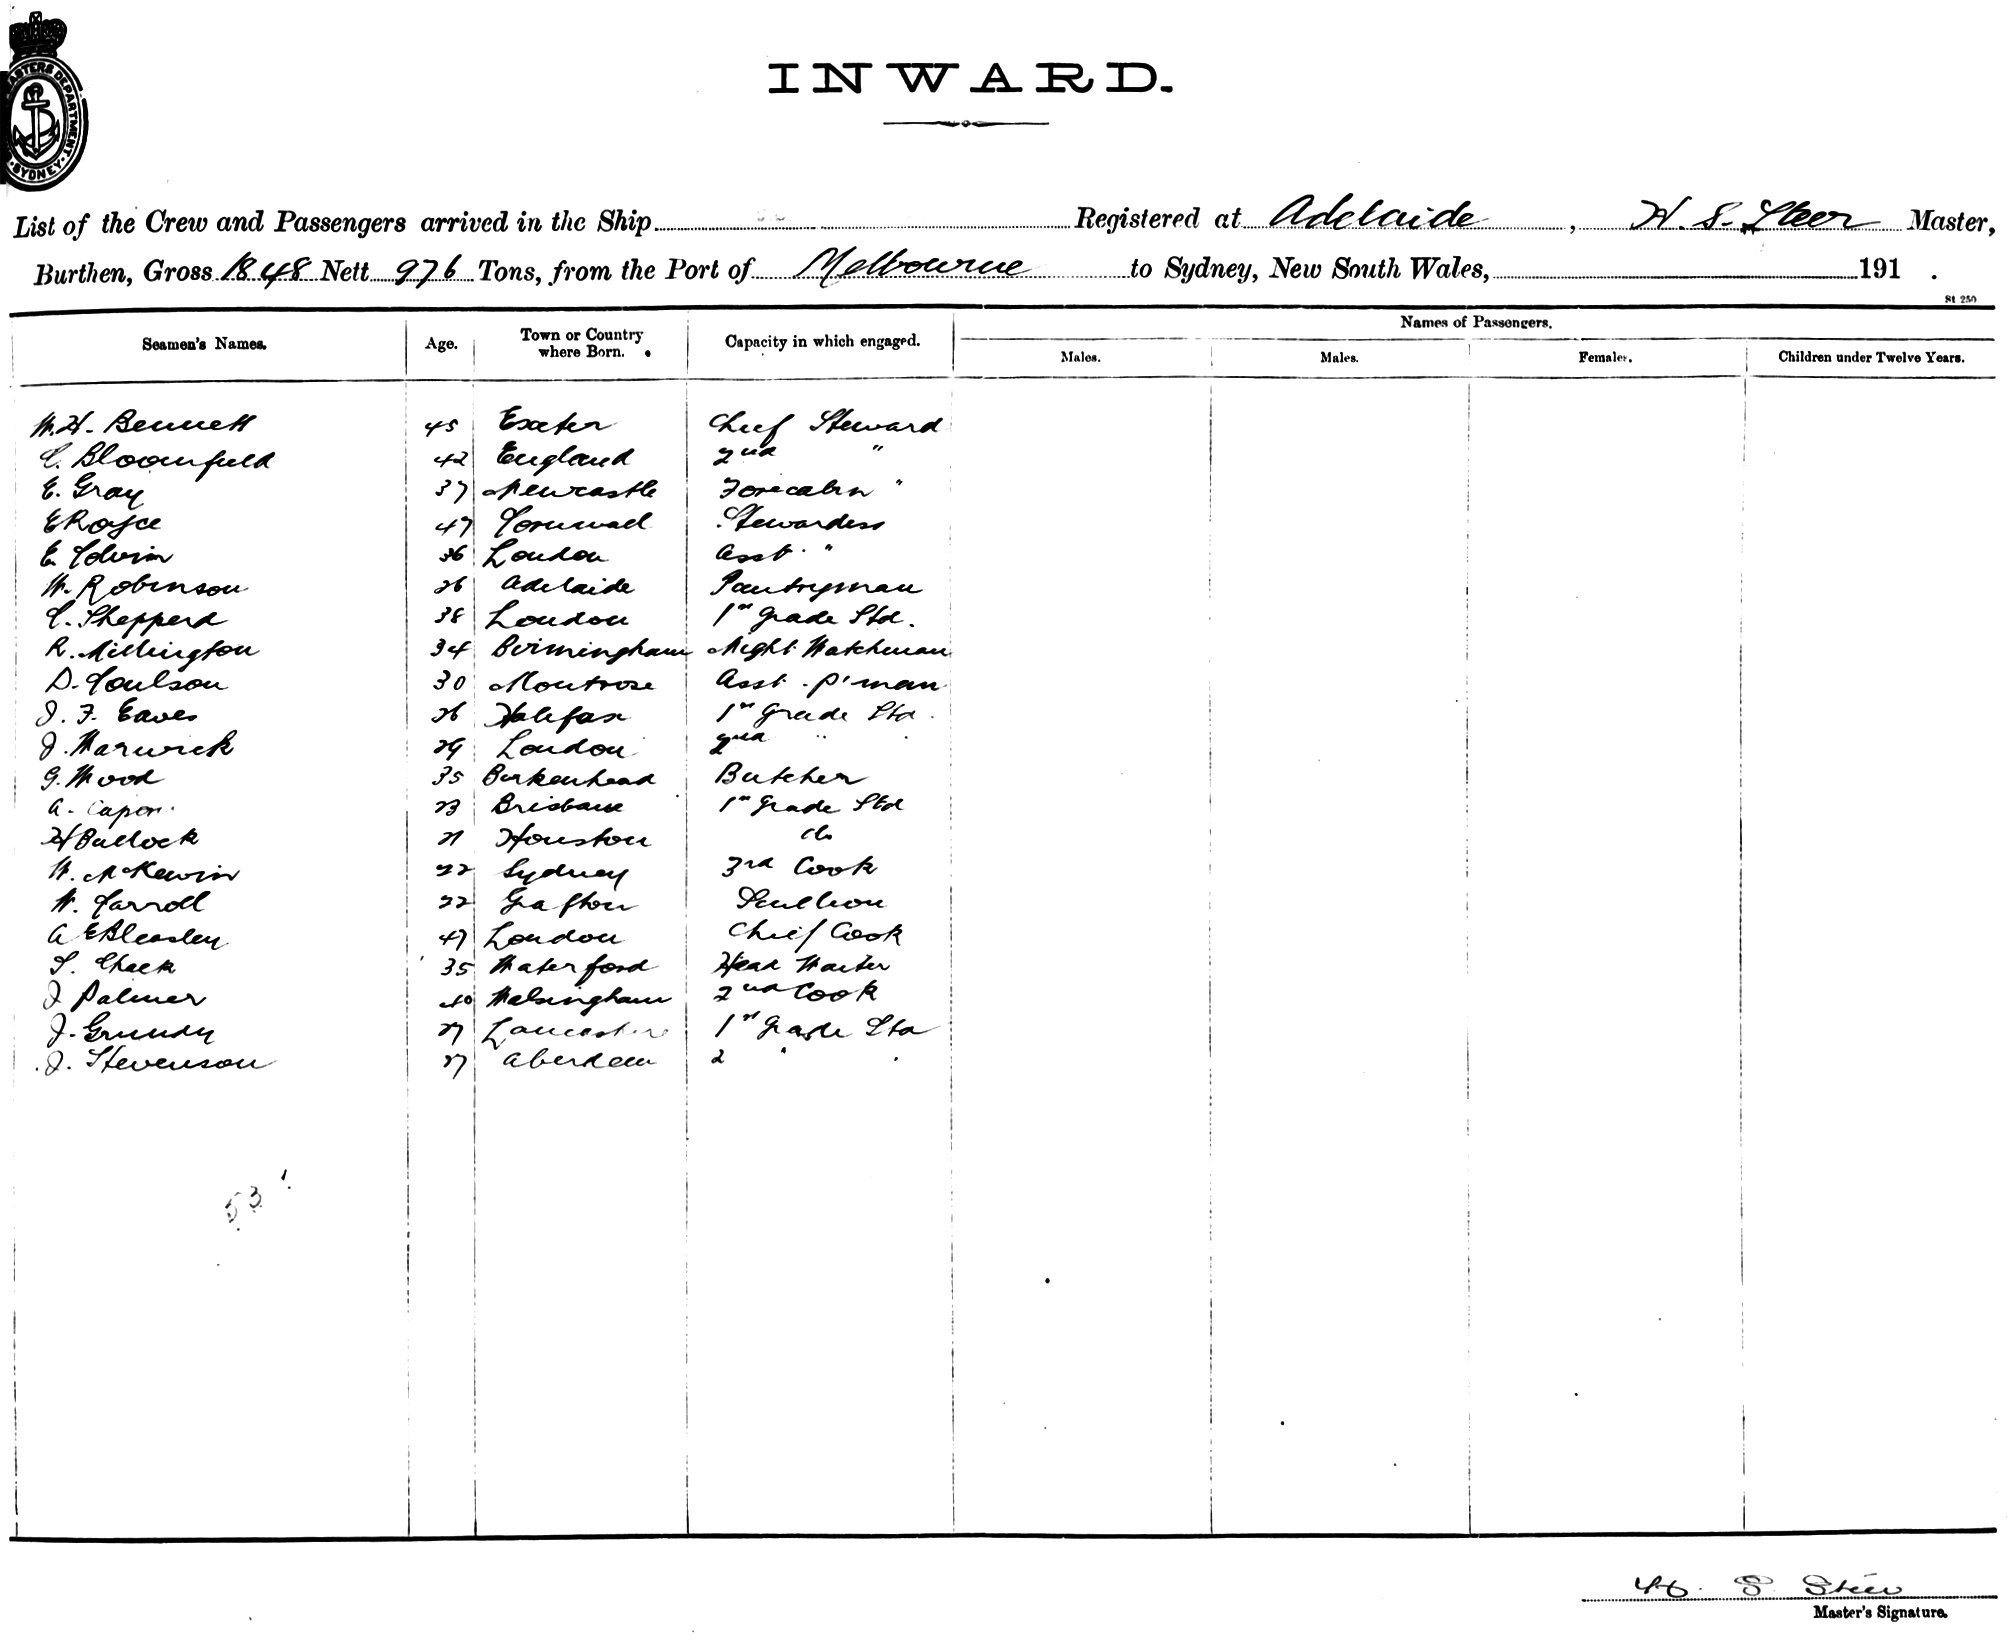 MASTERS DEPARTMENT. SYDNEY
INWARD.
List of the Crew and Passengers arrived in the Ship Registered at Adelaide, H. S. Steer Master,
Burthen, Gross 1848 Nett 976 Tons, from the Port of Melbourne to Sydney, New South Wales, 191 .
St 250
Seamen's Names. Age. Town or Country where Born. Capacity in which engaged. Names of Passengers.
Males. Males. Females. Children under Twelve Years.
W. H. Bennett 45 Exeter Chief Steward
C. Bloomfield 42 England 2nd "
E. Gray 37 Newcastle Forecabin "
E Royce 47 Cornwall Stewardess
E. Colvin 36 London Asst. "
W. Robinson 26 Adelaide Pantryman
C. Shepperd 38 London 1st Grade Std.
R. Millington 34 Birmingham Night Watchman
D. Coulson 30 Montrose Asst. P'man
J. F. Eaves 26 Halifax 1st Grade Std.
J. Warwick 29 London 2nd " "
G. Wood 35 Birkenhead Butcher
A. Capon 23 Brisbane 1st Grade Std
H Bullock 21 Houston do
W. McKewin 22 Sydney 3rd Cook
W. Carroll 22 Grafton Scullion
A E Bleasley 47 London Chief Cook
S. Cheek 35 Waterford Head Waiter
J Palmer 40 Walsingham 2nd Cook
J. Grundy 27 Lancaster 1st Grade Std
J. Stevenson 27 Aberdeen 2 " "
53
H. S. Steer
Master's Signature.